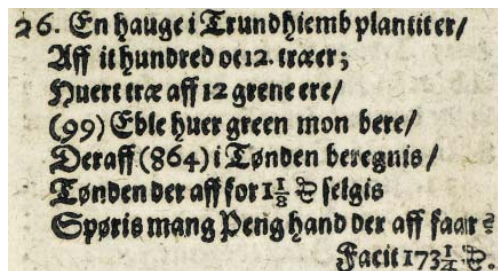 26. En hauge i Trundhiemb plantit er/
Aff it hundred oc 12. træer;
Huert træ aff 12 grene ere/
(99) Eble huer green mon bere/
Deraff (864) i Tønden beregnis/
Tønden der aff for 1 1/8 ₰ selgis
Spøris mang Peng hand der aff faar?
Facit 173 1/4 ₰.